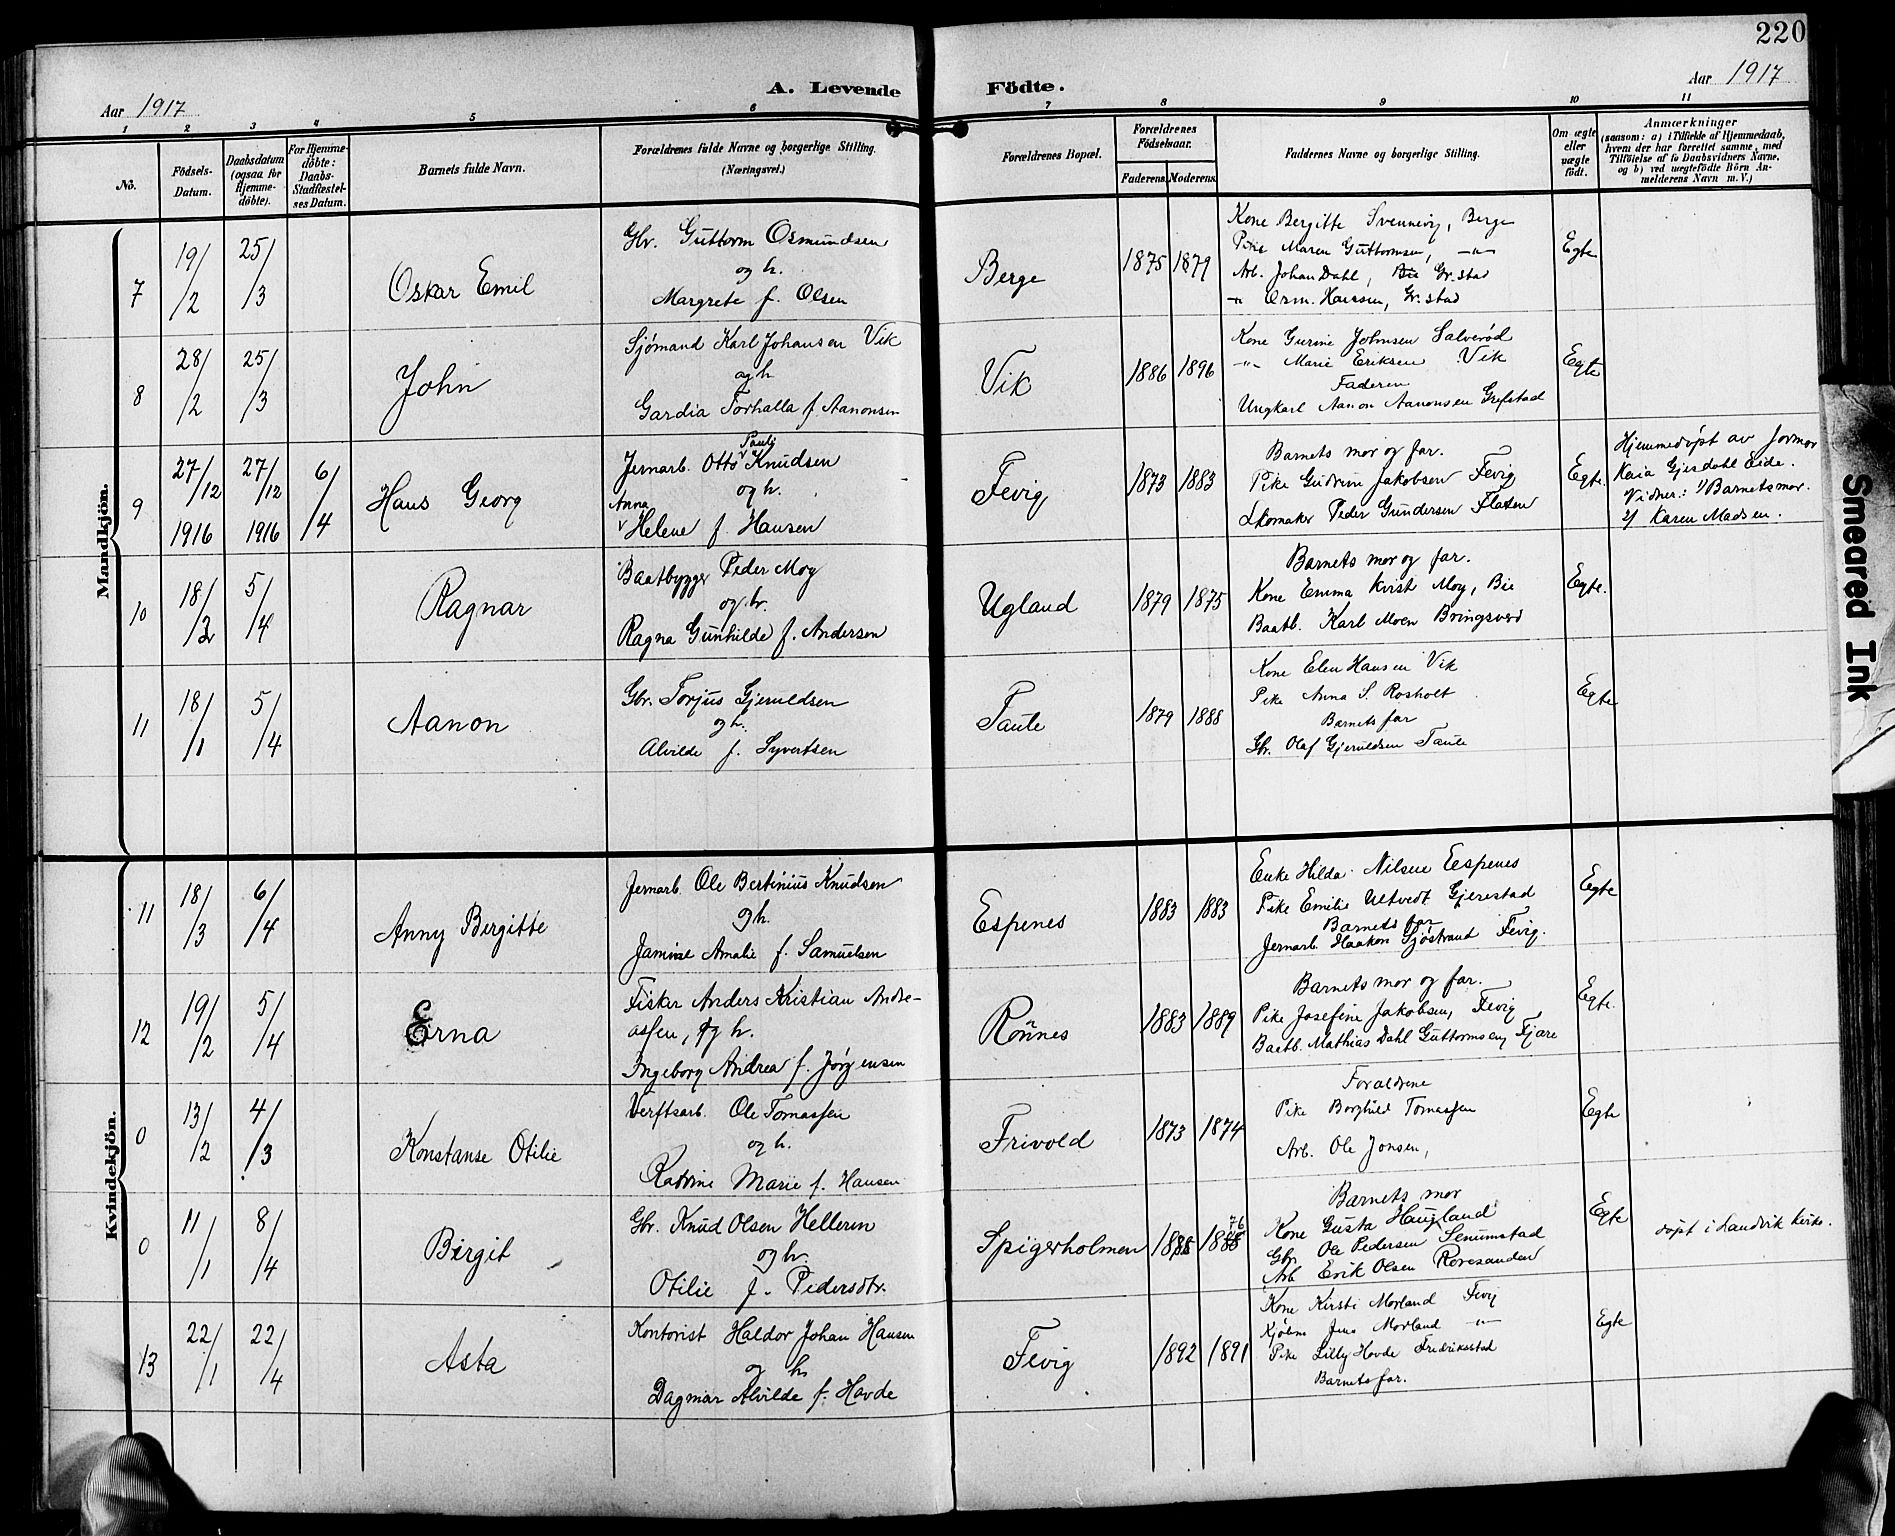 220
Aar 1917
A. Levende Födte.
Aar 1917
1 2 3 4 5 6 7 8 9 10 11
No.
Födsels-Datum.
Daabsdatum (ogsaa for Hjemme-döbte).
For Hjemme-döbte: Daabs-Stadfæstel-ses Datum.
Barnets fulde Navn.
Forældrenes fulde Navne og borgerlige Stilling. (Næringsvei.)
Forældrenes Bopæl.
Forældrenes Födselsaar.
Faderens. Moderens.
Faddernes Navne og borgerlige Stilling.
Om ægte eller uægte födt.
Anmærkninger
(saasom: a) i Tilfælde af Hjemmedaab,
hvem der har forrettet samme, med
Tilföielse af to Daabsvidners Navne,
og b) ved uægtefödte Börn An-
melderens Navn m. V.)
Mandkjön.
7
19/2
25/3
Oskar Emil
Gbr. Guttorm Osmundsen
og h.
Margrete f. Olsen
Berge
1875 1879
Kone Bergitte Svennevig, Berge
Pike Maren Guttormsen, -"-
Arb. Johan Dahl, Gr.stad
-"- Osm. Hansen, Gr.stad
Egte
8
28/2
25/3
John
Sjömand Karl Johansen Vik
og h
Gardia Torhalla f. Aanonsen
Vik
1886 1896
Kone Gurine Johnsen Salveröd
-"- Marie Eriksen Vik
Faderen
Ungkarl Aanon Aanonsen Grefstad
Egte
9
27/12 1916
27/12 1916
6/4
Hans Georg
Pauli
Jernarb. Otto Knudsen
og h.
Anna
Helene f Hansen
Fevig
1873 1883
Barnets mor og far.
Pike Gudrun Jakobsen Fevig
Skomaker Peder Gundersen Flaten
Egte.
Hjemmedöpt av jormor
Kaia Gjersdahl Eide.
Vidner: 1/ Barnets mor.
2/ Karen Madsen.
10
18/2
5/4
Ragnar
Baatbygger Peder Moy
og h.
Ragna Gunhilde f. Andersen
Ugland
1879 1875
Barnets mor og far.
Kone Emma Kvist Moy, Bie
Baatb. Karl Moen Bringsverd
Egte.
11
18/1
5/4
Aanon
Gbr. Torjus Gjeruldsen
og h.
Alvilde f. Syvertsen
Taule
1879 1888
Kone Elen Hansen Vik
Pike Anna S. Rosholt
Barnets far
Gbr. Olaf Gjeruldsen Taule
Egte
Kvindekjön.
11
18/3
6/4
Anny Birgitte
Jernarb. Ole Bertinius Knudsen
og h.
Jamine Amalie f. Samuelsen
Espenes
1883 1883
Enke Hilda Nilsen Eespenes
Pike Emilie Ultvedt Gjerestad
Barnets far
Jernarb. Haakon Sjöstrand Fevig.
Egte
12
19/2
5/4
Erna
Fisker Anders Kristian Andre-
assen, og h.
Ingeborg Andrea f. Jörgensen
Rönnes
1883 1889
Barnets mor og far.
Pike Josefine Jakobsen, Fevig
Baatb. Mathias Dahl Guttormsen, Fjære
Egte.
0
13/2
4/3
Konstanse Otilie
Verftsarb. Ole Tomassen
og h.
Katrine Marie f. Hansen
Frivold
1873 1874
Foraldrene
Pike Borghild Tomassen
Arb. Ole Jonsen,
Egte
0
11/1
8/4
Birgit
Gbr. Knud Olsen Helleren
og h.
Otilie f. Pedersdtr.
Spigerholmen
76
Barnets mor
Kone Gusta Haugland
Gbr. Ole Pedersen Senumstad
Arb Erik Olsen Roresanden
Egte
döpt i Landvik kirke.
13
22/1
22/4
Asta
Kontorist Haldor Johan Hansen
og h
Dagmar Alvilde f. Hovde
Fevig
1892 1891
Kone Kirsti Morland Fevig
Kjöbm Jens Morland -"-
Pike Lilly Hovde Fredriksstad
Barnets far.
Egte
Smeared Ink